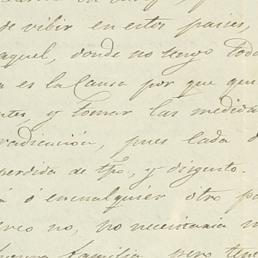 de vibir en estos paises,
aquel, donde no tengo toda
a es la Causa por que que
ntes, y tomar las medida
radicación, pues cada d
perdida de tpo, y disgusto.
á ó en cualquier otro p
creo no, no necesitaria m
familia, pero ten